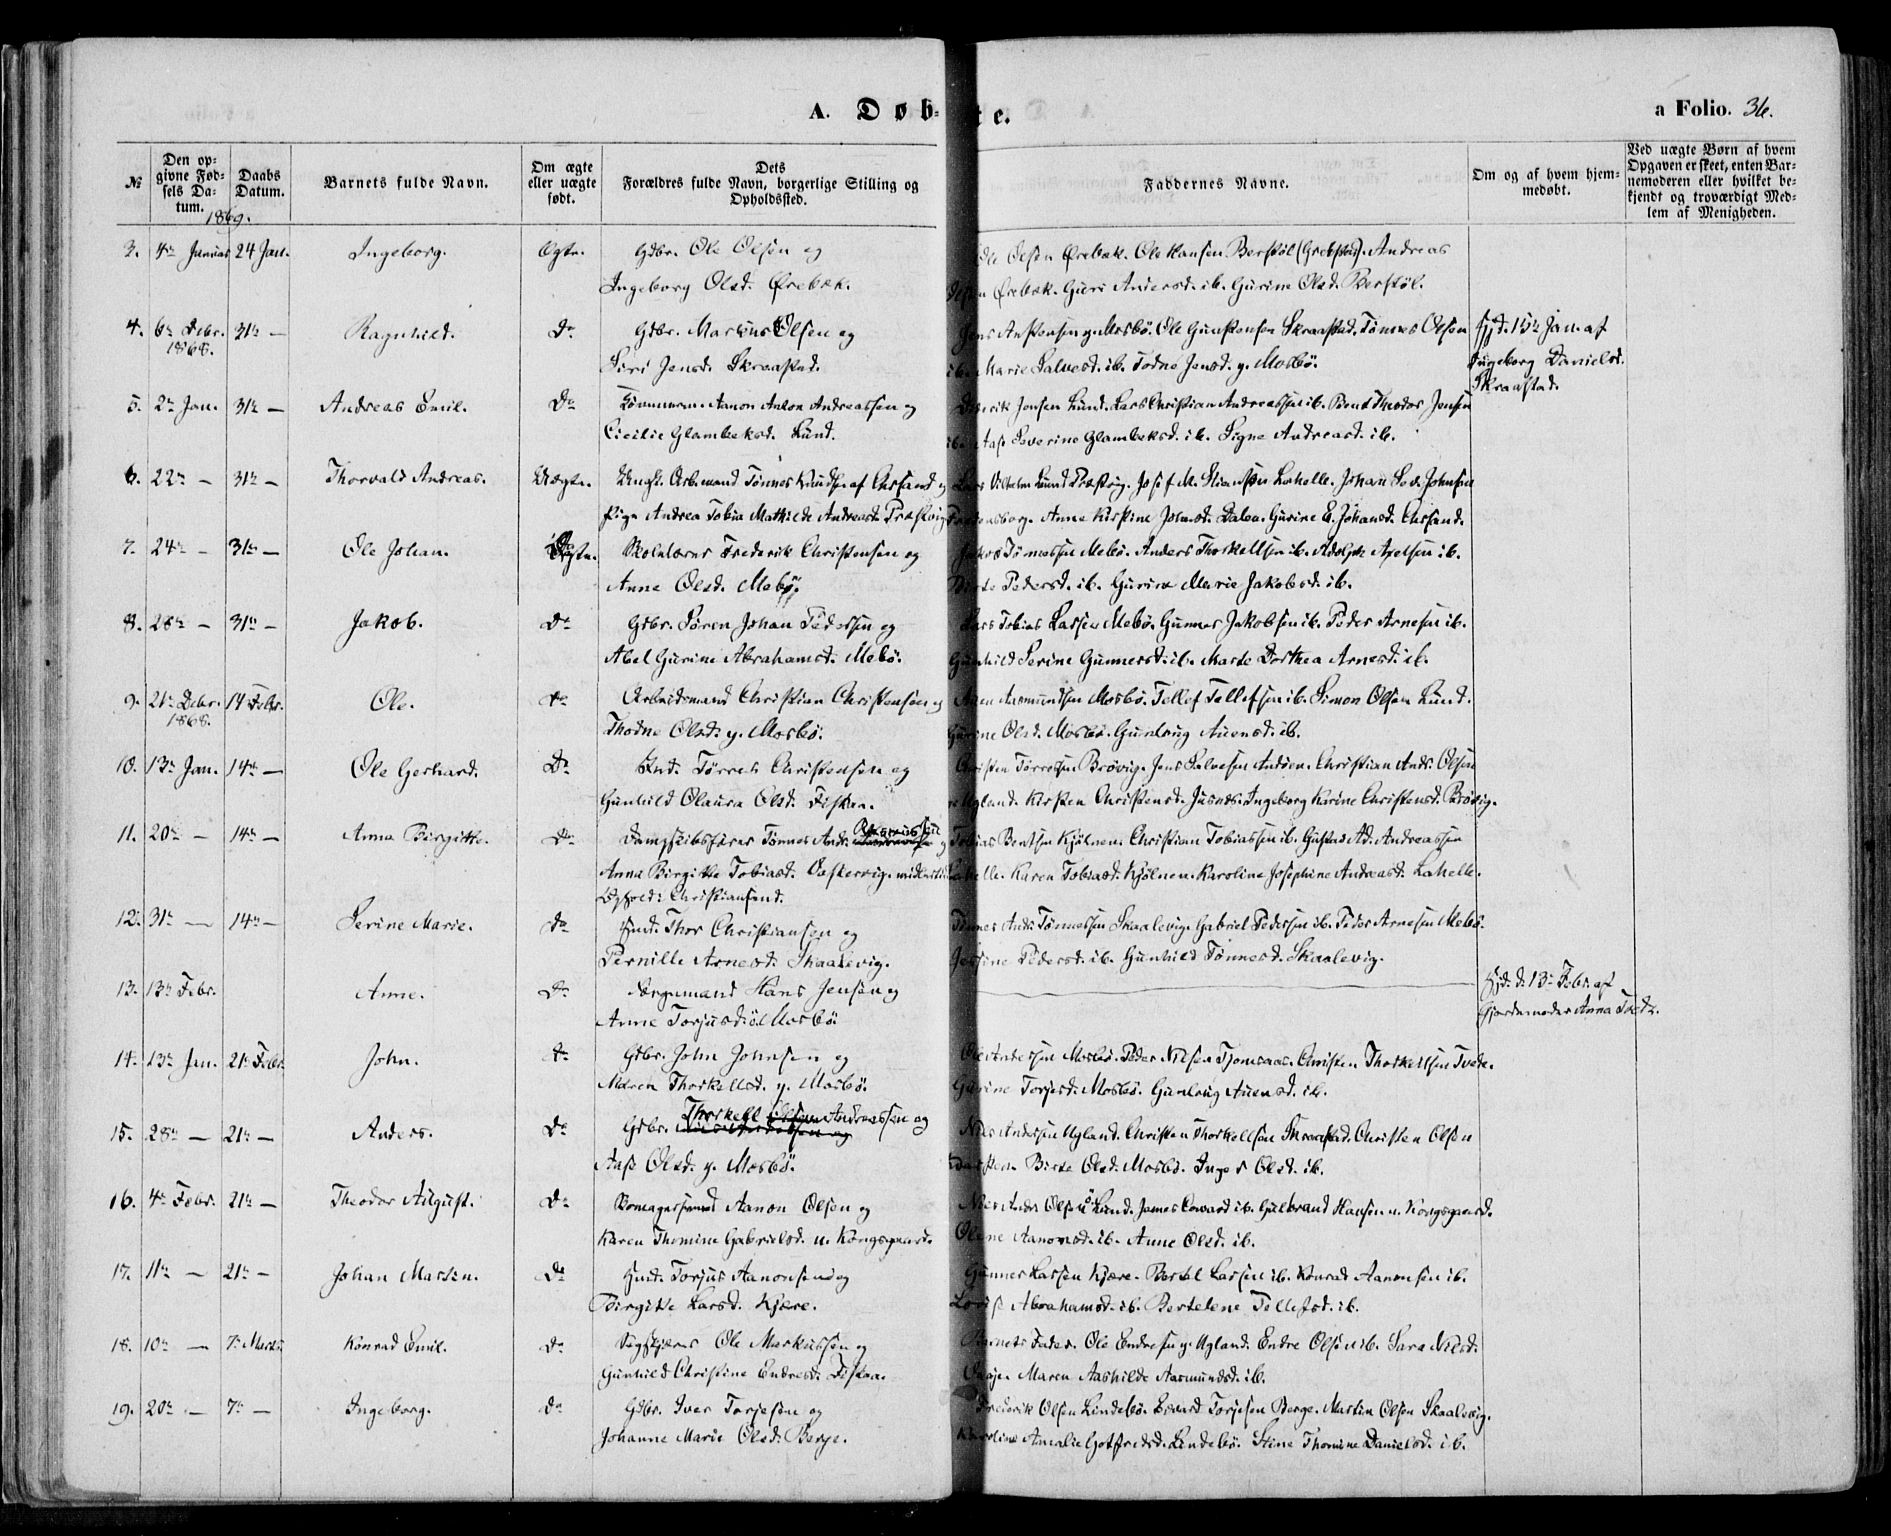 A. Døb-
te.
a Folio. 36.
№
Den op-
givne Fød-
sels Da-
tum.
Daabs
Datum.
Barnets fulde Navn.
Om ægte
eller uægte
født.
Dets
Forældres fulde Navn, borgerlige Stilling og
Opholdssted.
Faddernes Navne.
Om og af hvem hjem-
medøbt.
Ved uægte Børn af hvem
Opgaven er skeet, enten Bar-
nemoderen eller hvilket be-
kjendt og troværdigt Med-
lem af Menigheden.
1869.
3. 4de Januar 24 Jan. Ingeborg. Ægte. Gdbr. Ole Olsen og
Ingeborg Olsd. Ørebæk.
Ole Olsen Ørebæk. Ole Hansen Berstøl (Grebstad). Andreas
Olsen Ørebæk. Guri Andersd. ib. Gurine Olsd. Berstøl.
4. 6te Debr. 31te — Ragnhild. Do Gdbr. Markus Olsen og
1868.
Siri Jensd. Skraastad.
Jens Anstensen y. Mosbø. Ole Gunstensen Skraastad. Tønnes Olsen
ib. Marie Salvesd. ib. Todne Jensd. y. Mosbø.
Hjd. 15de Jan. af
Ingeborg Danielsd.
Skraastad.
5. 2de Jan. 31te — Andreas Emil. Do Tømmerm. Aanon Anton Andreassen og
Cicilie Glambeksd. Lund.
Diderik Jensen Lund. Lars Christian Andreassen ib. Bernt Theodor Jensen
ib. Aase Severine Glambeksd. ib. Signe Andreasd. ib.
6. 22de — 31te — Thorvald Andreas. Uægte. Ungk. Arb.mand Tønnes Knudsen af Chrsand og
Pige Andrea Tobia Mathilde Andreasd. Præstvig
Lars Vilhelm Lund Præstvig. Josef M. Stiansen Lahelle. Johan Lod. Johnsen
Fredensborg. Anne Kirstine Johnsd. Dalen. Gurine E. Johansd. Chrsand.
7. 24de — 31te — Ole Johan. Ægte. Skolelærer Frederik Christensen og
Anne Olsd. Mebø.
Jakob Tønnessen Mebø. Anders Thorkellsen ib. Adolph Axelsen ib.
Birte Pedersd. ib. Gurine Marie Jakobsd. ib.
8. 28de — 31te — Jakob. Do Gdbr. Søren Johan Pedersen og
Abel Gurine Abrahamsd. Mebø.
Lars Tobias Lassen Mebø. Gunner Jakobsen ib. Peder Arnesen ib.
Gunhild Serine Gunnersd. ib. Marte Dorthea Arnesd. ib.
9. 21de Debr. 14 Febr. Ole. Do Arbeidsmand Christian Christensen og
1868.
Thodne Olsd. y. Mosbø.
Auen Aasmundsen Mosbø. Tellef Tellefsen ib. Simon Olsen Lund.
Gurine Olsd. Mosbø. Gunlaug Auensd. ib.
10. 13de Jan. 14de — Ole Gerhard. Do Ind. Tørres Christensen og
Gunhild Olaura Olsd. Fiskaa.
Christen Tørresen Brøvig. Jens Salvesen Andøen. Christian Andr. Olsen
Ugland. Kirsten Christensd. Jusnes. Ingeborg Karine Christensd. Brøvig.
11. 20de — 14de — Anna Birgitte. Do Dampskibsfører Tønnes Andr. Rasmussen og
Anna Birgitte Tobiasd. Østervig. midlertid.
Ophold: Christiansand.
Tobias Bentsen Kjølnen. Christian Tobiassen ib. Gustav Ad. Andreassen
Lahelle. Karen Tobiasd. Kjølnen. Karoline Josephine Andreasd. Lahelle.
12. 31te — 14de — Serine Marie. Do Ind. Thor Christiansen og
Pernille Arnesd. Skaalevig.
Tønnes Andr. Tønnessen Skaalevig. Gabriel Pedersen ib. Peder Arnesen Mebø.
Josine Pedersd. ib. Gunhild Tønnesd. Skaalevig.
13. 13de Febr. Anne. Do Hans Jensen og
Anne Torjusd. ø. Mosbø.
Hjd. d. 13de Febr. af
Gjordemoder Anna Tvede.
14. 13de Jan. 21de Febr. John. Do Gdbr. John Johnsen og
Maren Thorkellsd. y. Mosbø.
Ole Andersen Mosbø. Peder Nilsen Tjomsaas. Christen Thorkellsen Tvede.
Gurine Torjesd. Mosbø. Gunlaug Auensd. ib.
15. 28de — 21de — Anders. Do Gdbr. Thorkell Andreassen og
Aase Olsd. y. Mosbø.
Niels Andersen Ugland. Christen Thorkellsen Skraastad. Christen Olsen
Birte Olsd. Mosbø. Inger Olsd. ib.
16. 4de Febr. 21de — Theodor August. Do Aanon Olsen og
Karen Thomine Gabrielsd. n. Kongsgaard.
Nils Andr. Olsen ø. Lund. James Coward ib. Gulbrand Hansen n. Kongsgaard.
Olene Aanonsd. ib. Anne Olsd. ib.
17. 11te — 21de — Johan Martin. Do Gmd. Torjus Aanonsen og
Birgitte Larsd. Kjære.
Gunner Larsen Kjære. Bertel Larsen ib. Konrad Aanonsen ib.
Lovise Abrahamsd. ib. Bertelene Tellefsd. ib.
18. 10de — 7de Marts. Konrad Emil. Do Sagskjærer Ole Markussen og
Gunhild Christine Endresd. Fiskaa.
Barnets Fader. Ole Endresen y. Ugland. Endre Olsen ib. Sara Nilsd.
Vaaje. Maren Aashilde Aasmundsd. ib.
19. 20de — 7de — Ingeborg. Do Gdbr. Iver Torjesen og
Johanne Marie Olsd. Berge.
Frederik Olsen Lindebø. Edvard Torjesen Berge. Martin Olsen Skaalevig.
Karoline Amalie Gotfredsd. Lindebø. Stine Thomine Danielsd. ib.